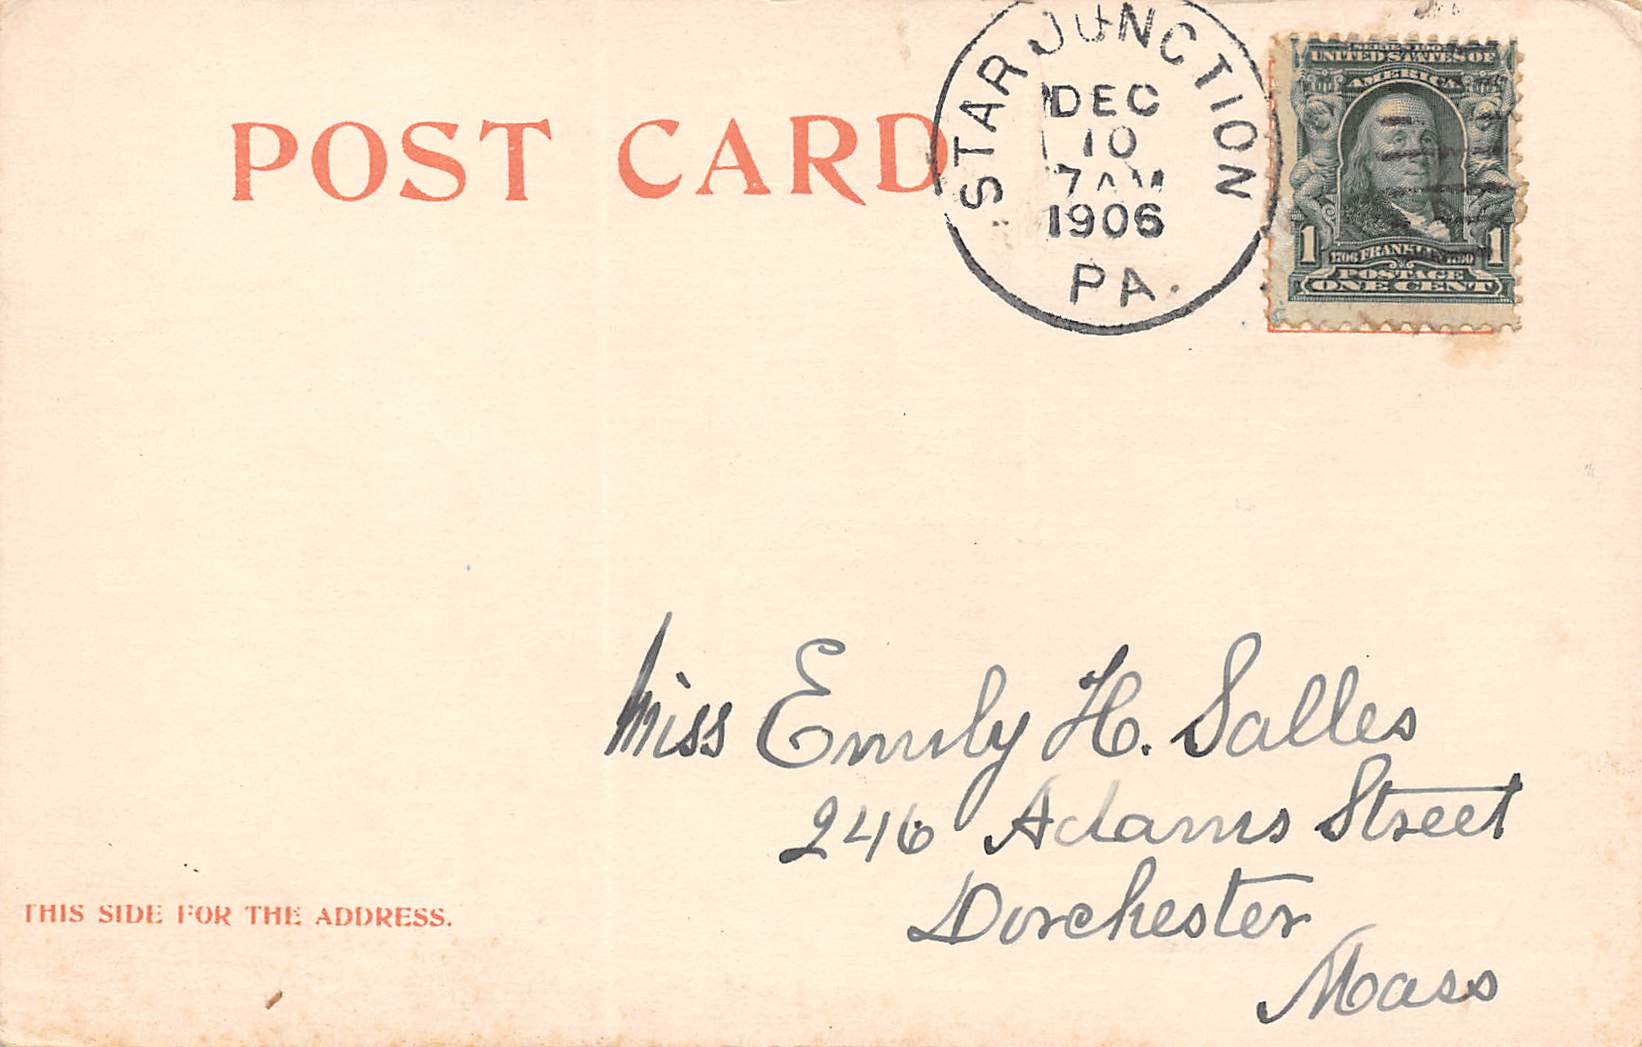 POST CARD
STAR JUNCTION
DEC
10
7 AM
1906
PA.
SERIES 1902
UNITED STATES OF
AMERICA
1 1706 FRANKLIN 1790 1
POSTAGE
ONE CENT
Miss Emily H. Salles
246 Adams Street
Dorchester
Mass
THIS SIDE FOR THE ADDRESS.